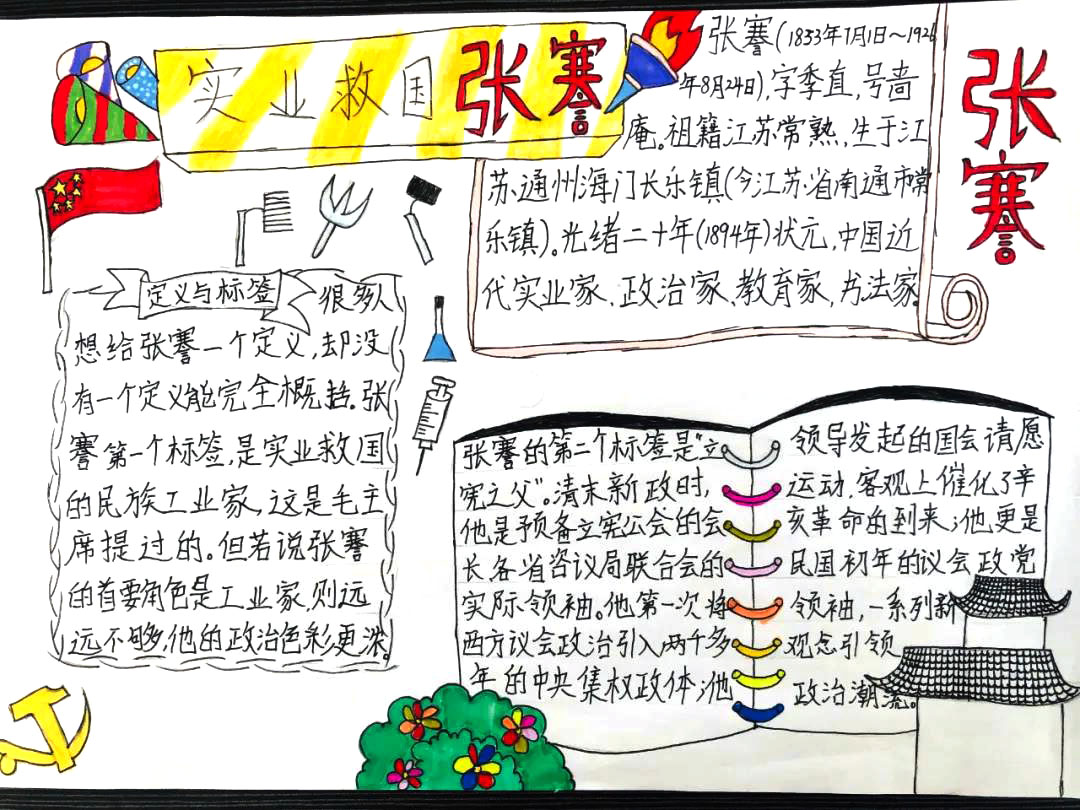 实业救国 张謇
张謇
张謇(1833年7月1日~1926
年8月24日),字季直,号啬
庵。祖籍江苏常熟,生于江
苏通州海门长乐镇(今江苏省南通市常
乐镇)。光绪二十年(1894年)状元,中国近
代实业家、政治家、教育家,书法家。
定义与标签
很多人
想给张謇一个定义,却没
有一个定义能完全概括。张
謇第一个标签,是实业救国
的民族工业家,这是毛主
席提过的。但若说张謇
的首要角色是工业家,则远
远不够,他的政治色彩更浓。
张謇的第二个标签是“立
宪之父”。清末新政时,
他是预备立宪公会的会
长各省咨议局联合会的
实际领袖。他第一次将
西方议会政治引入两千多
年的中央集权政体;他
领导发起的国会请愿
运动,客观上催化了辛
亥革命的到来;他更是
民国初年的议会政党
领袖,一系列新
观念引领
政治潮流。